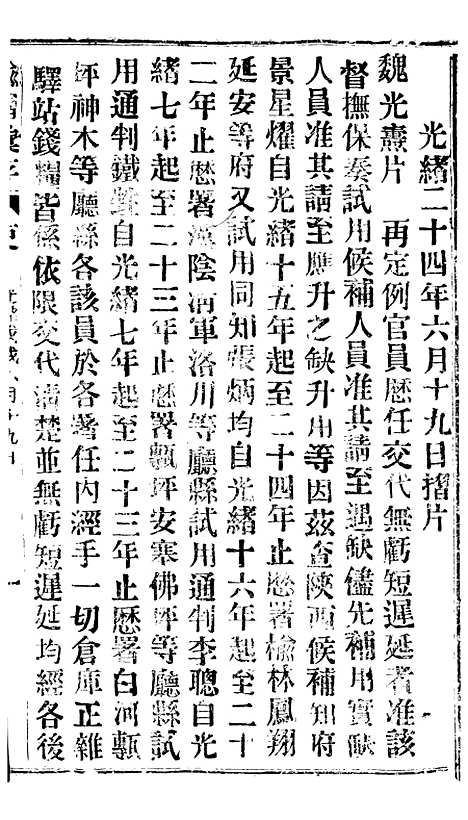 光緒二十四年六月十九日摺片
魏光燾片　再定例官員歷任交代無虧短遲延者准該
督撫保奏試用候補人員准其請至遇缺儘先補用實缺
人員准其請至應升之缺升用等因茲查陝西候補知府
景星燿自光緒十五年起至二十四年止歷署榆林鳳翔
延安等府又試用同知張炳均自光緒十六年起至二十
二年止歷署漢陰洵軍洛川等廳縣試用通判李聰自光
緒七年起至二十三年止歷署甎坪安寨佛坪等廳縣試
用通判鐵自光緒七年起至二十三年止歷署白河甎
坪神木等廳縣各該員於各署任內經手一切倉庫正雜
驛站錢糧皆係依限交代清楚並無虧短遲延均經各後
諭摺彙存